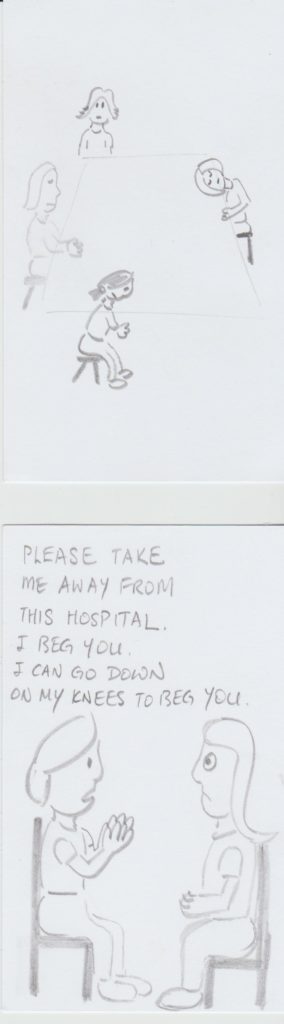 PLEASE TAKE
ME AWAY FROM
THIS HOSPITAL.
I BEG YOU.
I CAN GO DOWN
ON MY KNEES TO BEG YOU.